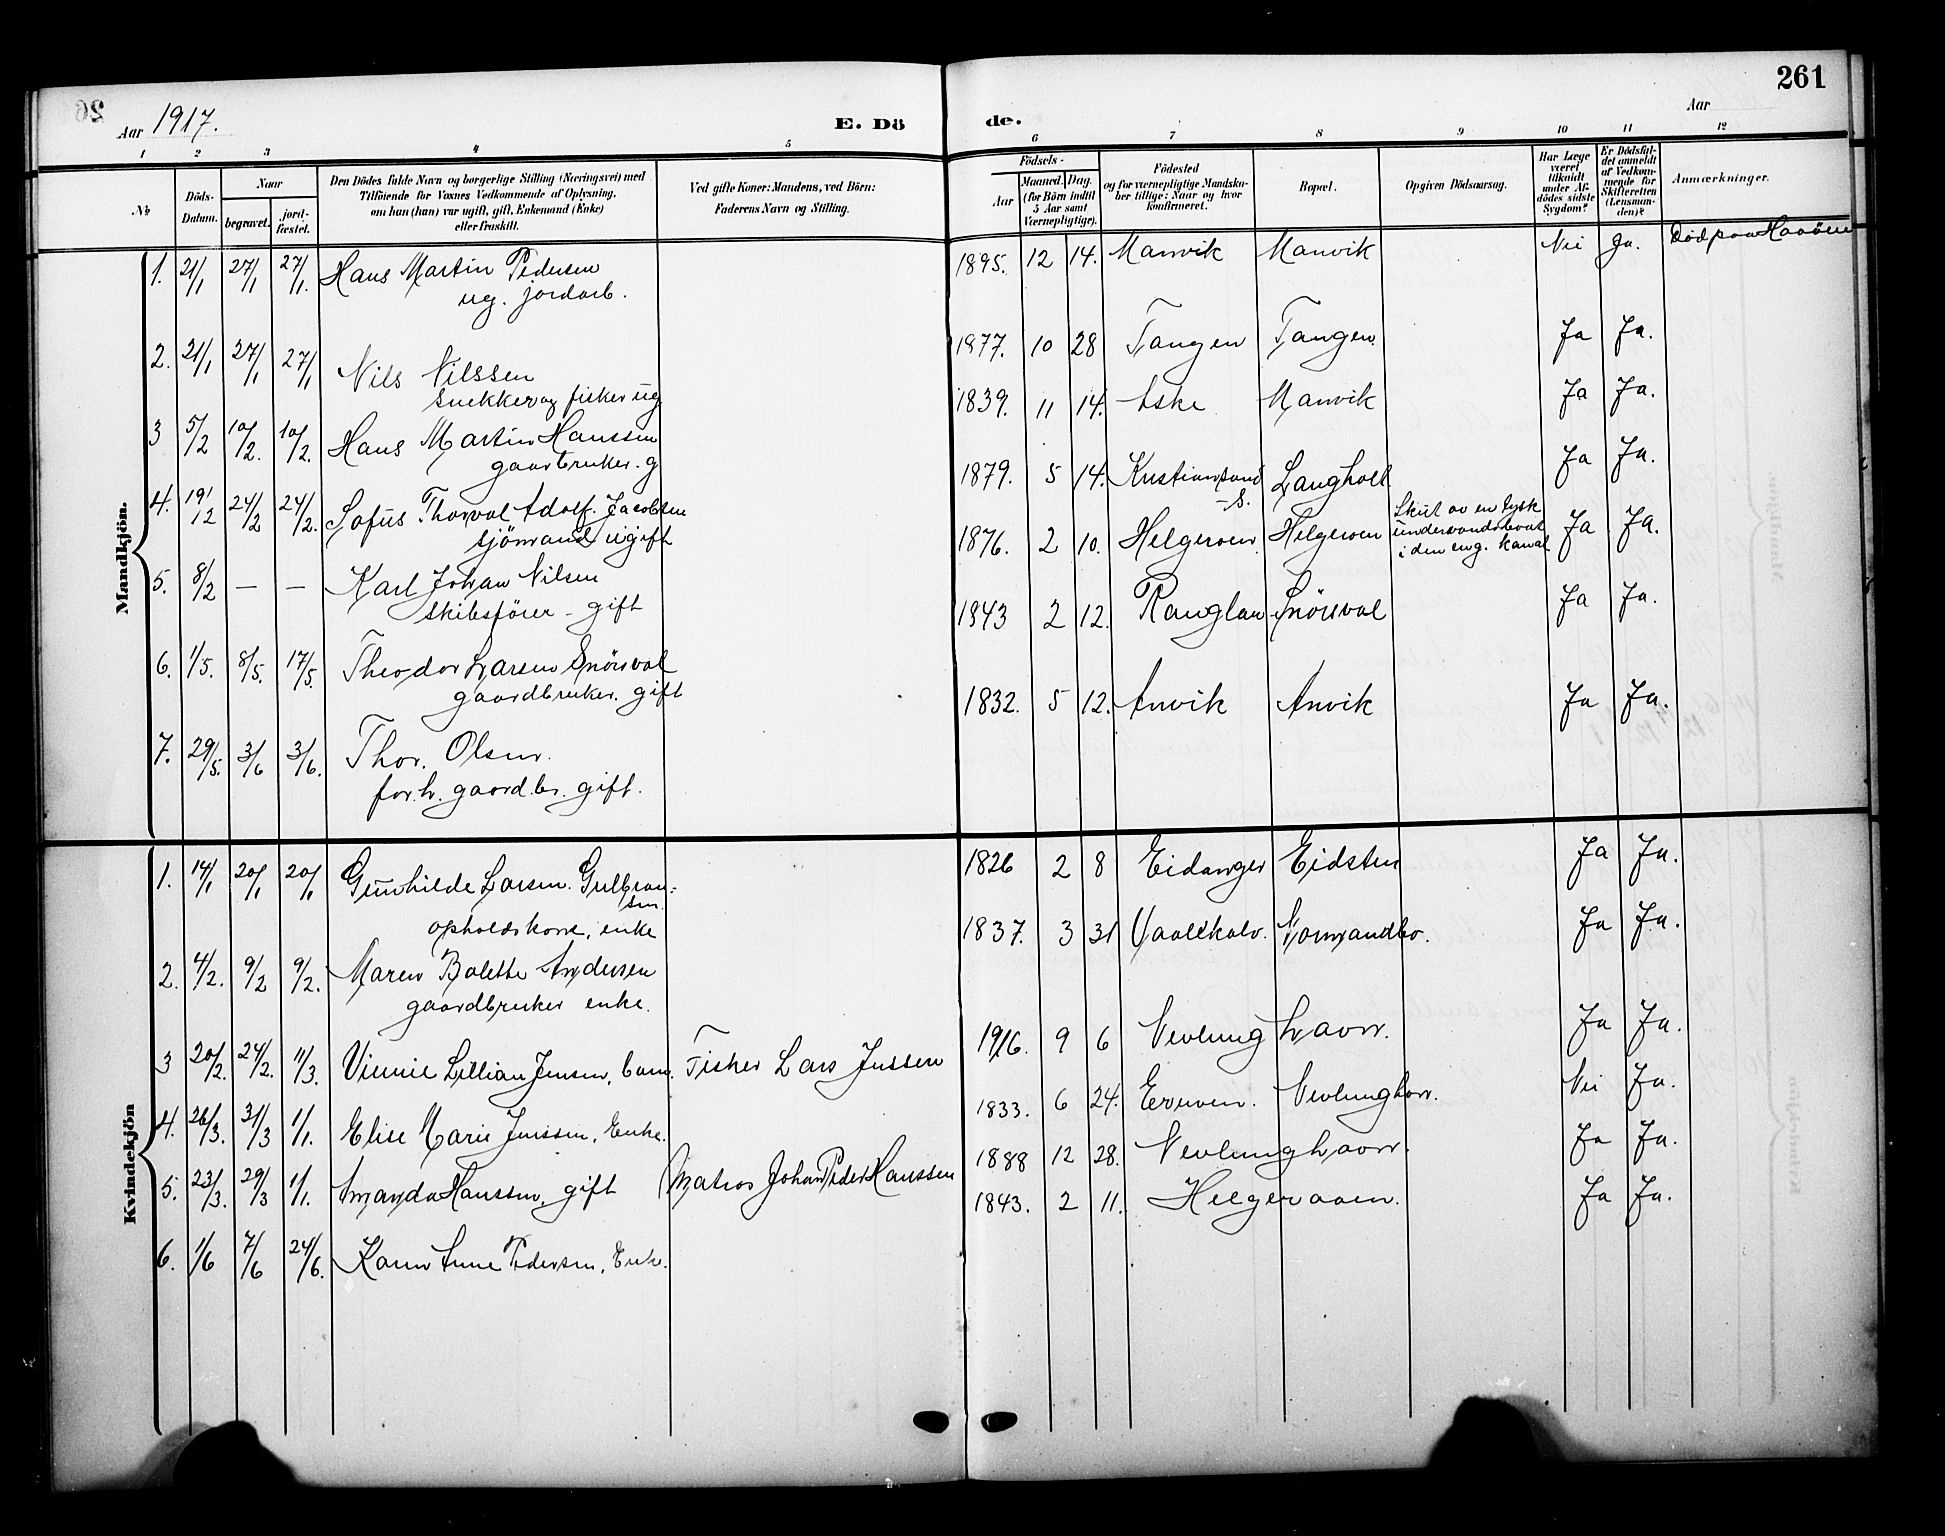 261
Aar 1917.
E. Dö de.
Aar
1 2 3 4 5 6 7 8 9 10 11 12
No
Döds-Datum.
Naar
begravet.
jord-fæstet.
Den Dödes fulde Navn og borgerlige Stilling (Næringsvei) med
Tilföiende for Voxnes Vedkommende af Oplysning,
om han (hun) var ugift, gift, Enkemand (Enke)
eller fraskilt.
Ved gifte Koner: Mandens, ved Börn:
Faderens Navn og Stilling.
Födsels-
Aar
Maaned. Dag.
(for Börn indtil
5 Aar samt
Værnepligtige).
Födested
og for værnepligtige Mandska-
ber tillige: Naar og hvor
konfirmeret.
Bopæl.
Opgiven Dödsaarsag.
Har Læge
været
tilkaldt
under Af-
dödes sidste
Sygdom?
Er Dödsfal-
det anmeldt
af Vedkom-
mende for
Skifteretten
(Lensman-
den)?
Anmærkninger.
Mandkjön.
1. 21/1 27/1 27/1. Hans Martin Pedersen 1895. 12 14. Manvik Manvik Nei Ja. Död paa Haaöen
ug. jordarb.
2. 21/1 27/1 27/1 Nils Nilssen 1877. 10 28 Tangen Tangen. Ja Ja.
Snekker og fisker ug
3 5/2 10/2. 10/2. Hans Martin Hanssen 1839. 11 14. Aske Manvik Ja Ja.
gaarbruker. g
4. 19/12 24/2 24/2. Sofus Thorval Adolf. Jacobsen 1879. 5 14. Kristiansand Langholt Ja Ja.
-S.
sjömand ugift
5. 8/2 — — Karl Johan Nilsen 1876. 2 10. Helgeroen Helgeroen Skut av en tysk
undervandsbaat
i den eng. kanal Ja Ja.
skibsförer - gift
6. 1/5. 8/5. 17/5. Theodor Larsen Snörsval 1843 2 12. Ranglan Snörsval Ja Ja.
gaardbruker. gift
7. 29/5. 3/6 3/6. Thor. Olsen. 1832. 5 12. Anvik Anvik Ja Ja.
forh. gaardbr. gift.
Kvindekjön
1. 14/1 20/1 20/1 Gunhilde Larsen. Gulbran- 1826 2 8 Eidanger Eidsten Ja Ja.
sen.
opholdskone, enke
2. 4/2. 9/2 9/2. Maren Bolette Andersen 1837. 3 31 Ja Ja.
gaardbruker enke.
3 20/2. 24/2. 11/3. Vinnie Lillian Jensen, barn. Fisker Lars Jenssen 1916. 9 6 Nevlunghavn. Ja Ja.
4. 26/3. 31/3 1/1. Elise Marie Jenssen, Enke. 1833. 6 24. Nevlunghavn. Nei Ja.
5. 23/3. 29/3 1/1. Amanda Hanssen, gift Matros Johan Peder Hanssen 1888 12 28. Nevlunghavn. Ja Ja.
6. 1/6 7/6 24/6. Karen Anne Pedersen, Enke. 1843. 2 11. Helgeroaen. Ja Ja.